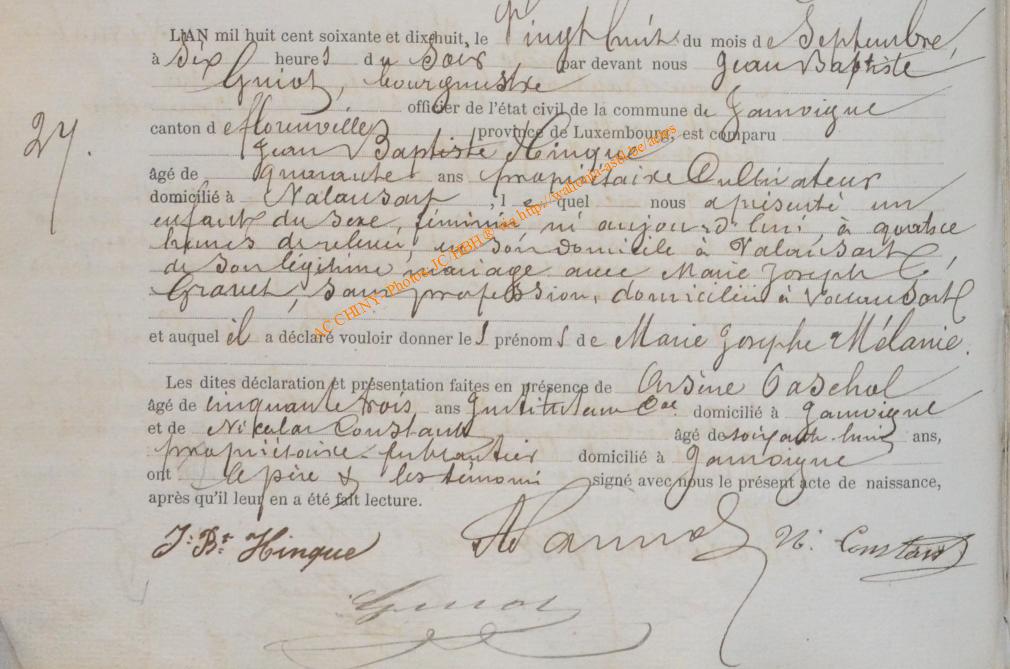 L'AN mil huit cent soixante et dix-huit, le Vingt huit du mois de Septembre,
à Six heures du Soir par devant nous Jean Baptiste
Guiot, bourgmestre
officier de l'état civil de la commune de Jamoigne
canton de florenville province de Luxembourg, est comparu
Jean Baptiste Hinque
27.
âgé de quarante ans propriétaire Cultivateur
domicilié à Valansart, lequel nous a présenté un
enfant du sexe féminin né aujourd'hui, à quatre
heures de relevée, en son domicile à Valansart,
de son légitime mariage avec Marie Joseph
Gravet, sans profession, domiciliée à Valansart
et auquel il a déclaré vouloir donner les prénoms de Marie Josephe Mélanie.
Les dites déclaration et présentation faites en présence de Arsène
âgé de cinquante trois ans Instituteur Cal domicilié à Jamoigne
et de Nicolas Constant âgé de soixante huit ans,
propriétaire domicilié à Jamoigne
ont le père & les témoins signé avec nous le présent acte de naissance,
après qu'il leur en a été fait lecture.
J: Bte Hinque N. Constant
Guiot
AC CHINY- Photos JC HBH & via http://wallonia-asbl.be/actes